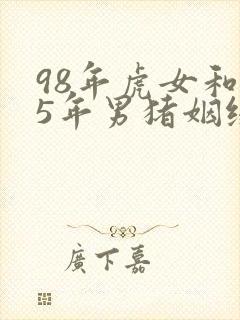 98年虎女和
5年男猪姻
廣下嘉